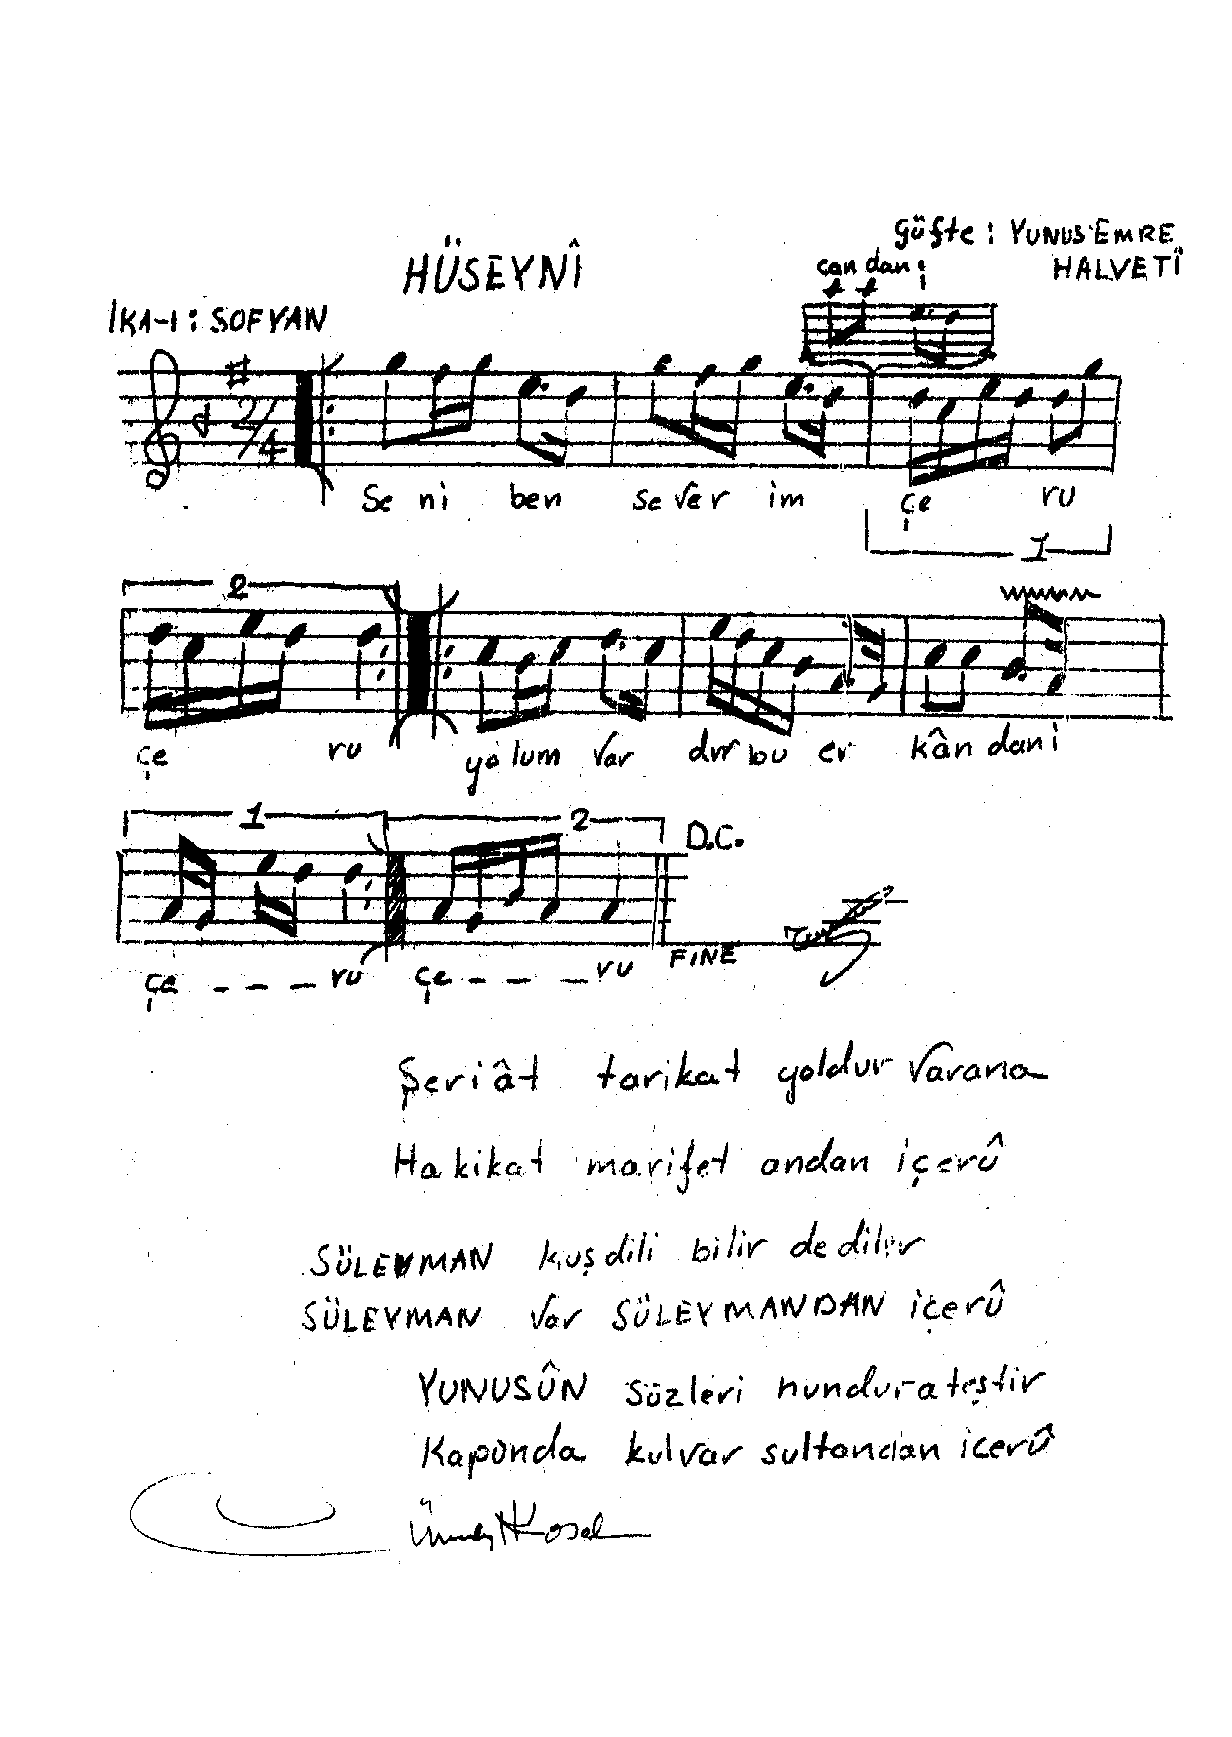 Güfte : YUNUS EMRE
HÜSEYNÎ
HALVETÎ
can dan i
İKA-I : SOFYAN
2/4
Se ni ben se ver im çe ru
1
2
çe ru yo lum var dır bu er kân dan i
1 2 D.C.
çe _ _ _ ru çe _ _ _ ru FINE
Şeriât tarikat yoldur Varana
Hakikat marifet andan içerû
SÜLEYMAN kuşdili bilir dediler
SÜLEYMAN var SÜLEYMANDAN içerû
YUNUSÛN sözleri hundur ateştir
Kapunda kulvar sultandan icerû